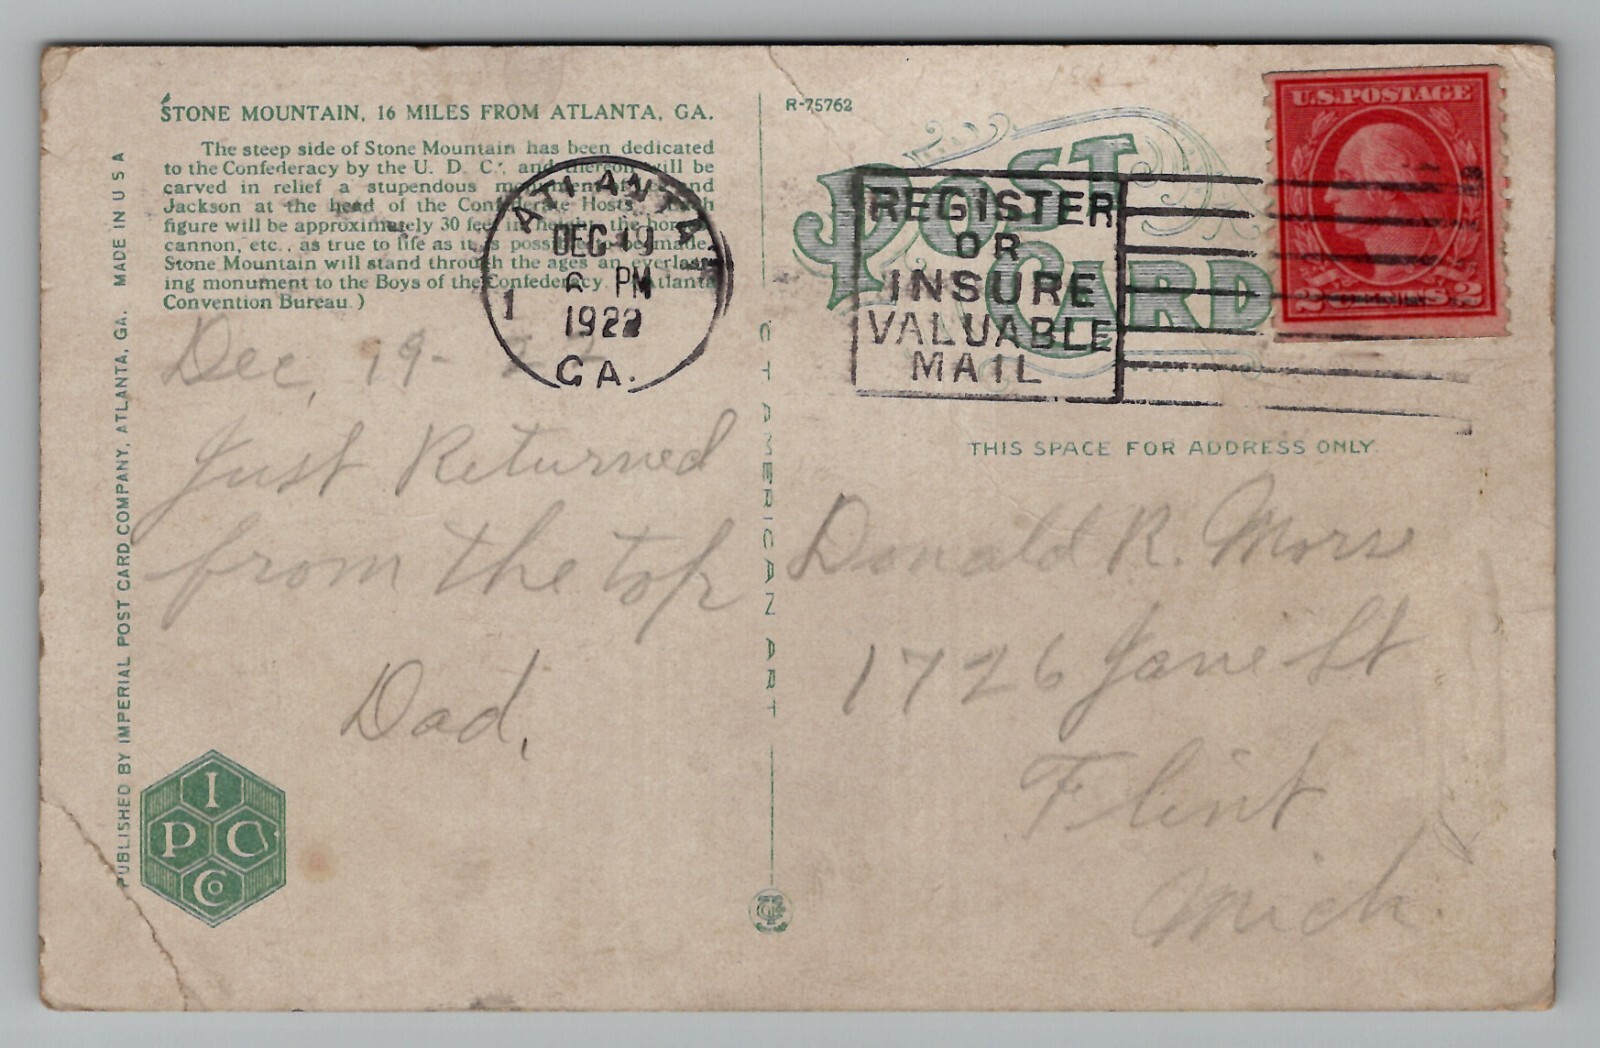 STONE MOUNTAIN, 16 MILES FROM ATLANTA, GA.
The steep side of Stone Mountain has been dedicated
to the Confederacy by the U. D. C., and thereon will be
carved in relief a stupendous monument of and
Jackson at the head of the Confederate Hosts.
figure will be approximately 30 feet in height, the
cannon, etc., as true to life as it is possible to be made.
Stone Mountain will stand through the ages an everlast-
ing monument to the Boys of the Confederacy. Atlanta
Convention Bureau.)
PUBLISHED BY IMPERIAL POST CARD COMPANY, ATLANTA, GA. MADE IN U S A
Dec, 19-
Just Returned
from the top
Dad.
I
P C
Co
ATLANTA
DEC
6 PM
1922
1
GA.
C T AMERICAN ART
R-75762
POST CARD
REGISTER
OR
INSURE
VALUABLE
MAIL
U.S. POSTAGE
2 CENTS 2
THIS SPACE FOR ADDRESS ONLY
Donald R. Morse
1726 Jane St
Flint
Mich